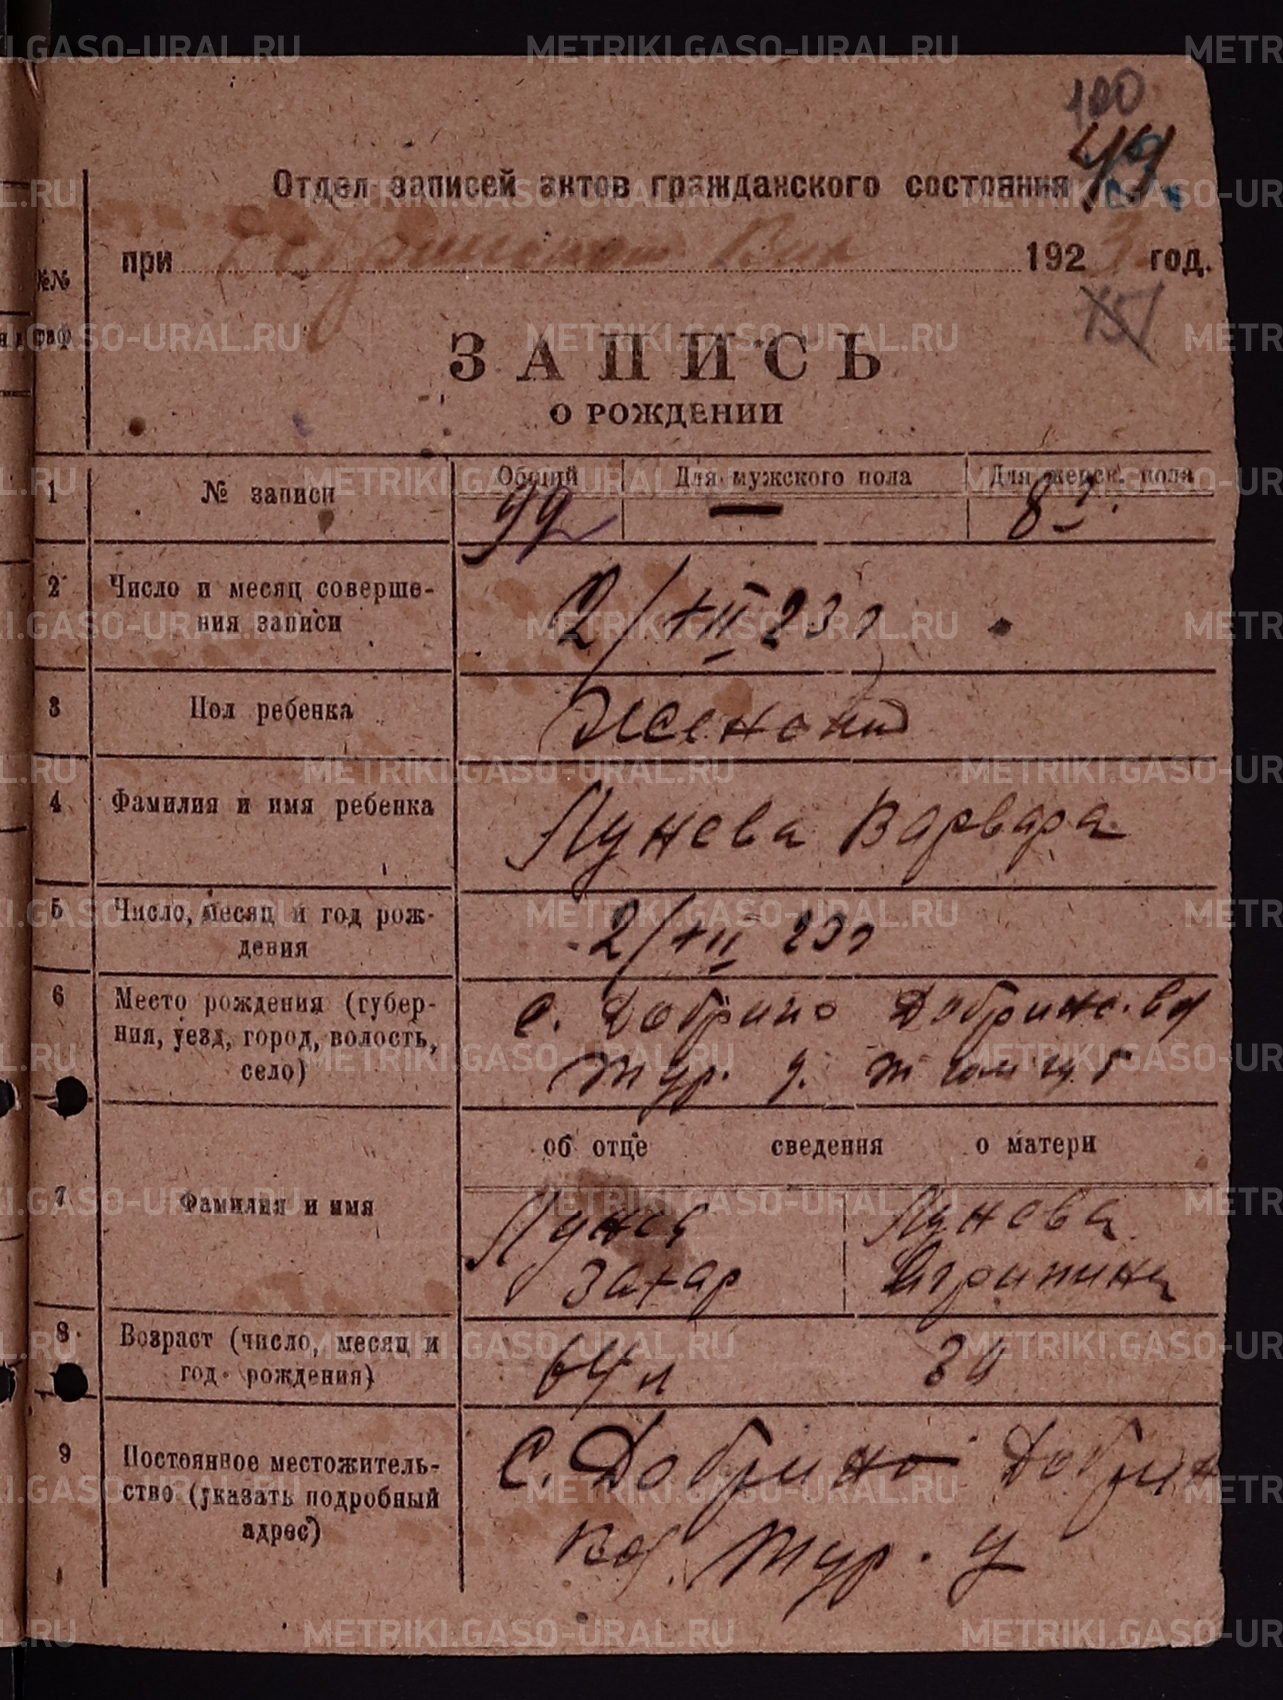 100
Отдел записей актов гражданского состояния
при Добринском Вик 1923 год.
№№
граф
151
ЗАПИСЬ
О РОЖДЕНИИ
Общий Для мужского пола Для женск. пола
1 № записи 99 — 81.
2 Число и месяц соверше-
ния записи 2/XII 23 г
3 Пол ребенка Женский
4 Фамилия и имя ребенка Лунева Варвара
5 Число, месяц и год рож-
дения 2/XII 23 г
6 Место рождения (губер-
ния, уезд, город, волость,
село)
с. Добрино Добринс. вол
Тур. у.
об отце сведения о матери
7 Фамилия и имя
Лунев Лунева
Захар Агрипина
8 Возраст (число, месяц и
год рождения) 64 л 34
9 Постоянное местожитель-
ство (указать подробный
адрес)
С. Добрино Добрин
вол. Тур. у
METRIKI.GASO-URAL.RU